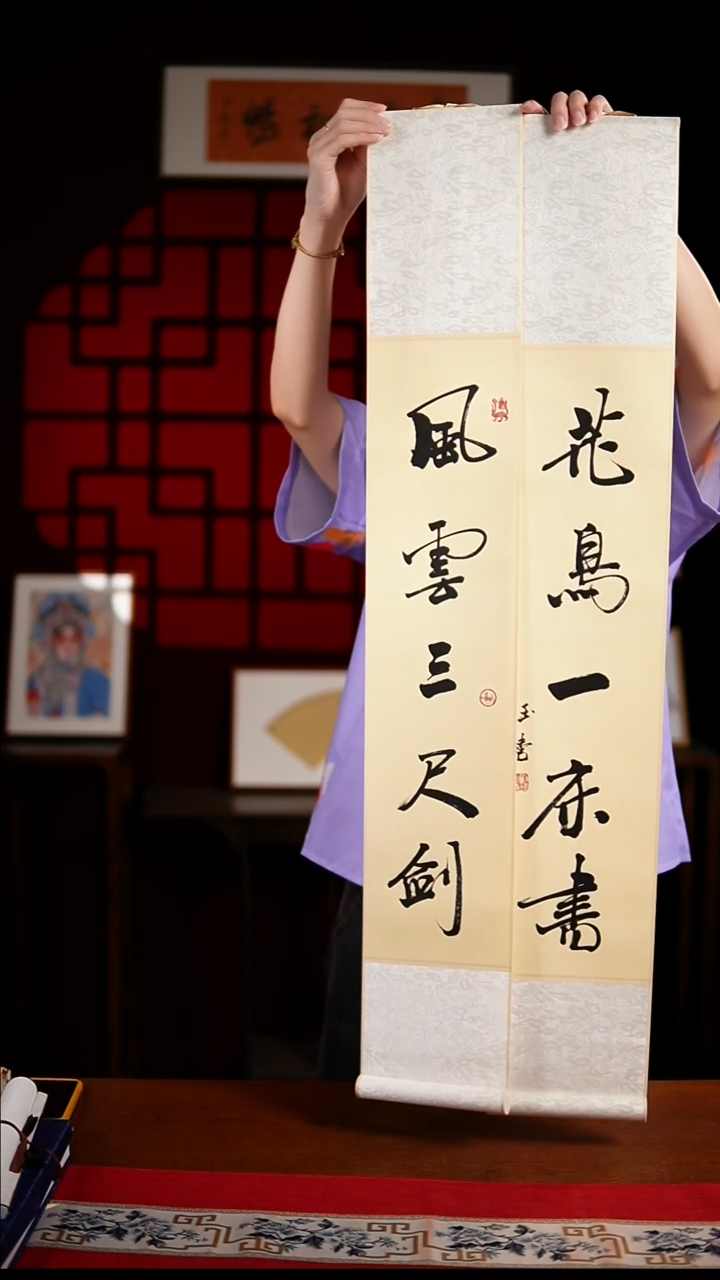 風雲三尺劍
花鳥一床書
玉書